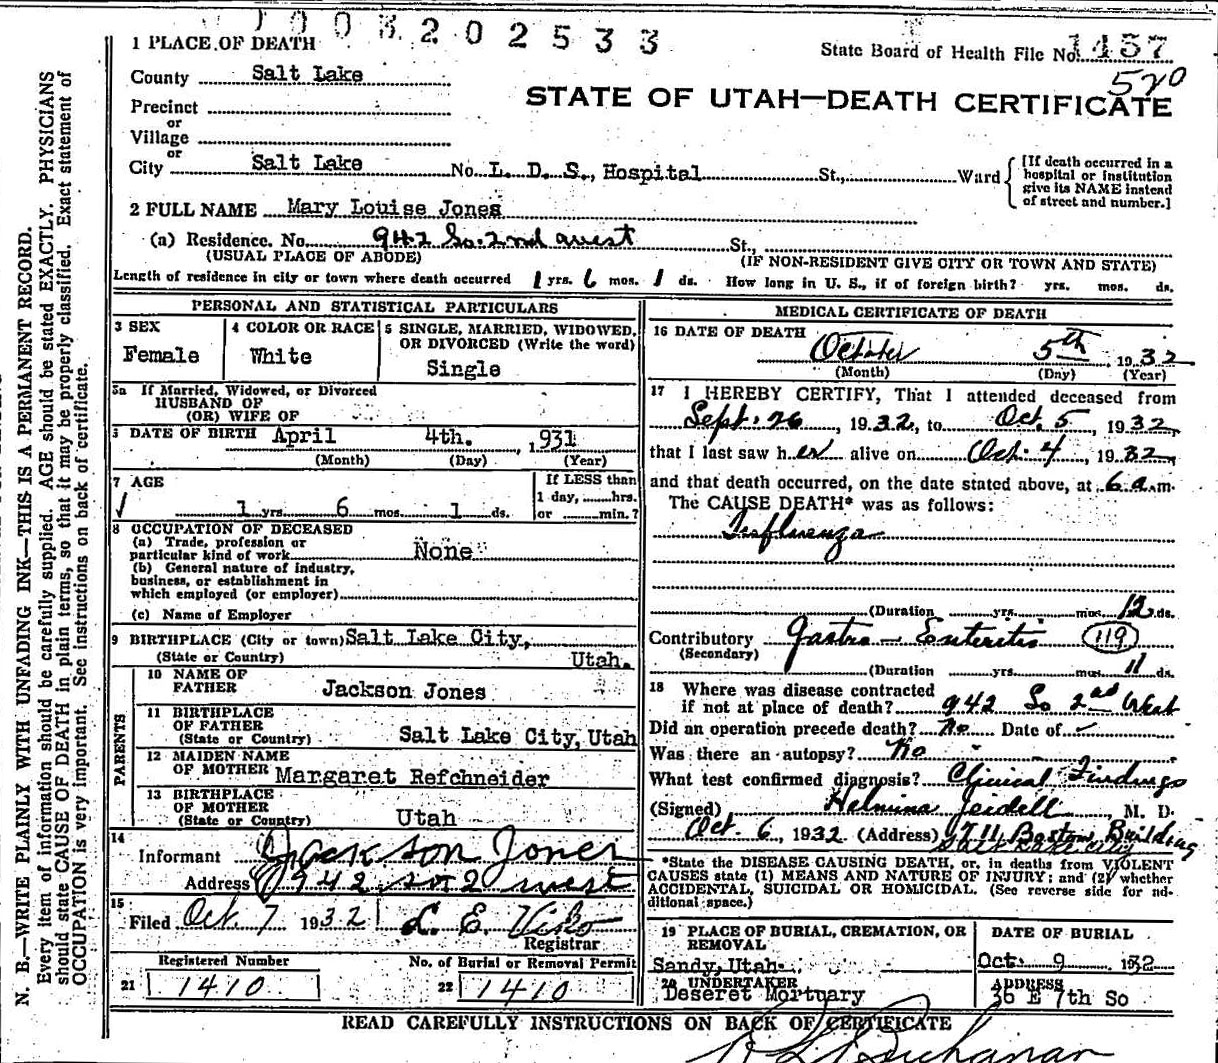 1003202533
1 PLACE OF DEATH
State Board of Health File No. 1457
520
County Salt Lake
STATE OF UTAH—DEATH CERTIFICATE
Precinct
or
Village
or
City Salt Lake No. L. D. S., Hospital St., Ward
[If death occurred in a
hospital or institution
give its NAME instead
of street and number.]
2 FULL NAME Mary Louise Jones
(a) Residence. No. 942 So. 2nd West St.,
(USUAL PLACE OF ABODE) (IF NON-RESIDENT GIVE CITY OR TOWN AND STATE)
Length of residence in city or town where death occurred 1 yrs. 6 mos. 1 ds. How long in U. S., if of foreign birth? yrs. mos. ds.
PERSONAL AND STATISTICAL PARTICULARS
3 SEX
Female
4 COLOR OR RACE
White
5 SINGLE, MARRIED, WIDOWED,
OR DIVORCED (Write the word)
Single
5a If Married, Widowed, or Divorced
HUSBAND OF
(OR) WIFE OF
DATE OF BIRTH April 4th. , 1931
(Month) (Day) (Year)
7 AGE
1 yrs. 6 mos. 1 ds.
If LESS than
1 day, hrs.
or min.?
8 OCCUPATION OF DECEASED
(a) Trade, profession or
particular kind of work None
(b) General nature of industry,
business, or establishment in
which employed (or employer)
(c) Name of Employer
9 BIRTHPLACE (City or town) Salt Lake City,
(State or Country) Utah.
PARENTS
10 NAME OF
FATHER Jackson Jones
11 BIRTHPLACE
OF FATHER
(State or Country) Salt Lake City, Utah
12 MAIDEN NAME
OF MOTHER Margaret Refchneider
13 BIRTHPLACE
OF MOTHER
(State or Country) Utah
14
Informant Jackson Jones
Address 942 so 2 west
15
Filed Oct. 7 1932 L. E. Viko
Registrar
Registered Number No. of Burial or Removal Permit
21 1410 22 1410
MEDICAL CERTIFICATE OF DEATH
16 DATE OF DEATH
October 5th , 1932
(Month) (Day) (Year)
17 I HEREBY CERTIFY, That I attended deceased from
Sept. 26, 1932, to Oct. 5, 1932,
that I last saw her alive on Oct. 4, 1932,
and that death occurred, on the date stated above, at 6 a.m.
The CAUSE DEATH* was as follows:
Influenza
(Duration yrs. mos. 12 ds.
Contributory Gastro-Enteritis 119
(Secondary)
(Duration yrs. mos. 11 ds.
18 Where was disease contracted
if not at place of death? 942 So 2nd West
Did an operation precede death? No Date of
Was there an autopsy? No
What test confirmed diagnosis? Clinical Findings
(Signed) Helmina Jeidell M. D.
Oct. 6, 1932 (Address) Boston Building
Salt Lake City
*State the DISEASE CAUSING DEATH, or, in deaths from VIOLENT
CAUSES state (1) MEANS AND NATURE OF INJURY; and (2) whether
ACCIDENTAL, SUICIDAL OR HOMICIDAL. (See reverse side for ad-
ditional space.)
19 PLACE OF BURIAL, CREMATION, OR
REMOVAL
Sandy, Utah.
DATE OF BURIAL
Oct. 9 1932
20 UNDERTAKER
Deseret Mortuary
ADDRESS
36 E 7th So
READ CAREFULLY INSTRUCTIONS ON BACK OF CERTIFICATE
Buchanan
N. B.—WRITE PLAINLY WITH UNFADING INK—THIS IS A PERMANENT RECORD.
Every item of information should be carefully supplied. AGE should be stated EXACTLY. PHYSICIANS
should state CAUSE OF DEATH in plain terms, so that it may be properly classified. Exact statement of
OCCUPATION is very important. See instructions on back of certificate.